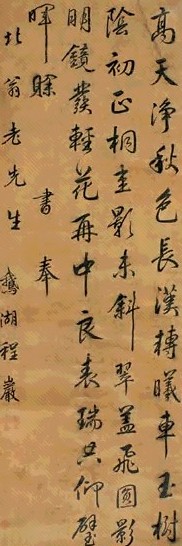 高天淨秋色長漢轉曦車玉樹
陰初正桐圭影未斜翠蓋飛圓影
明鏡發輕花再中良表瑞共仰璧
暉賖 書奉
北翁老先生 鵞湖程巖